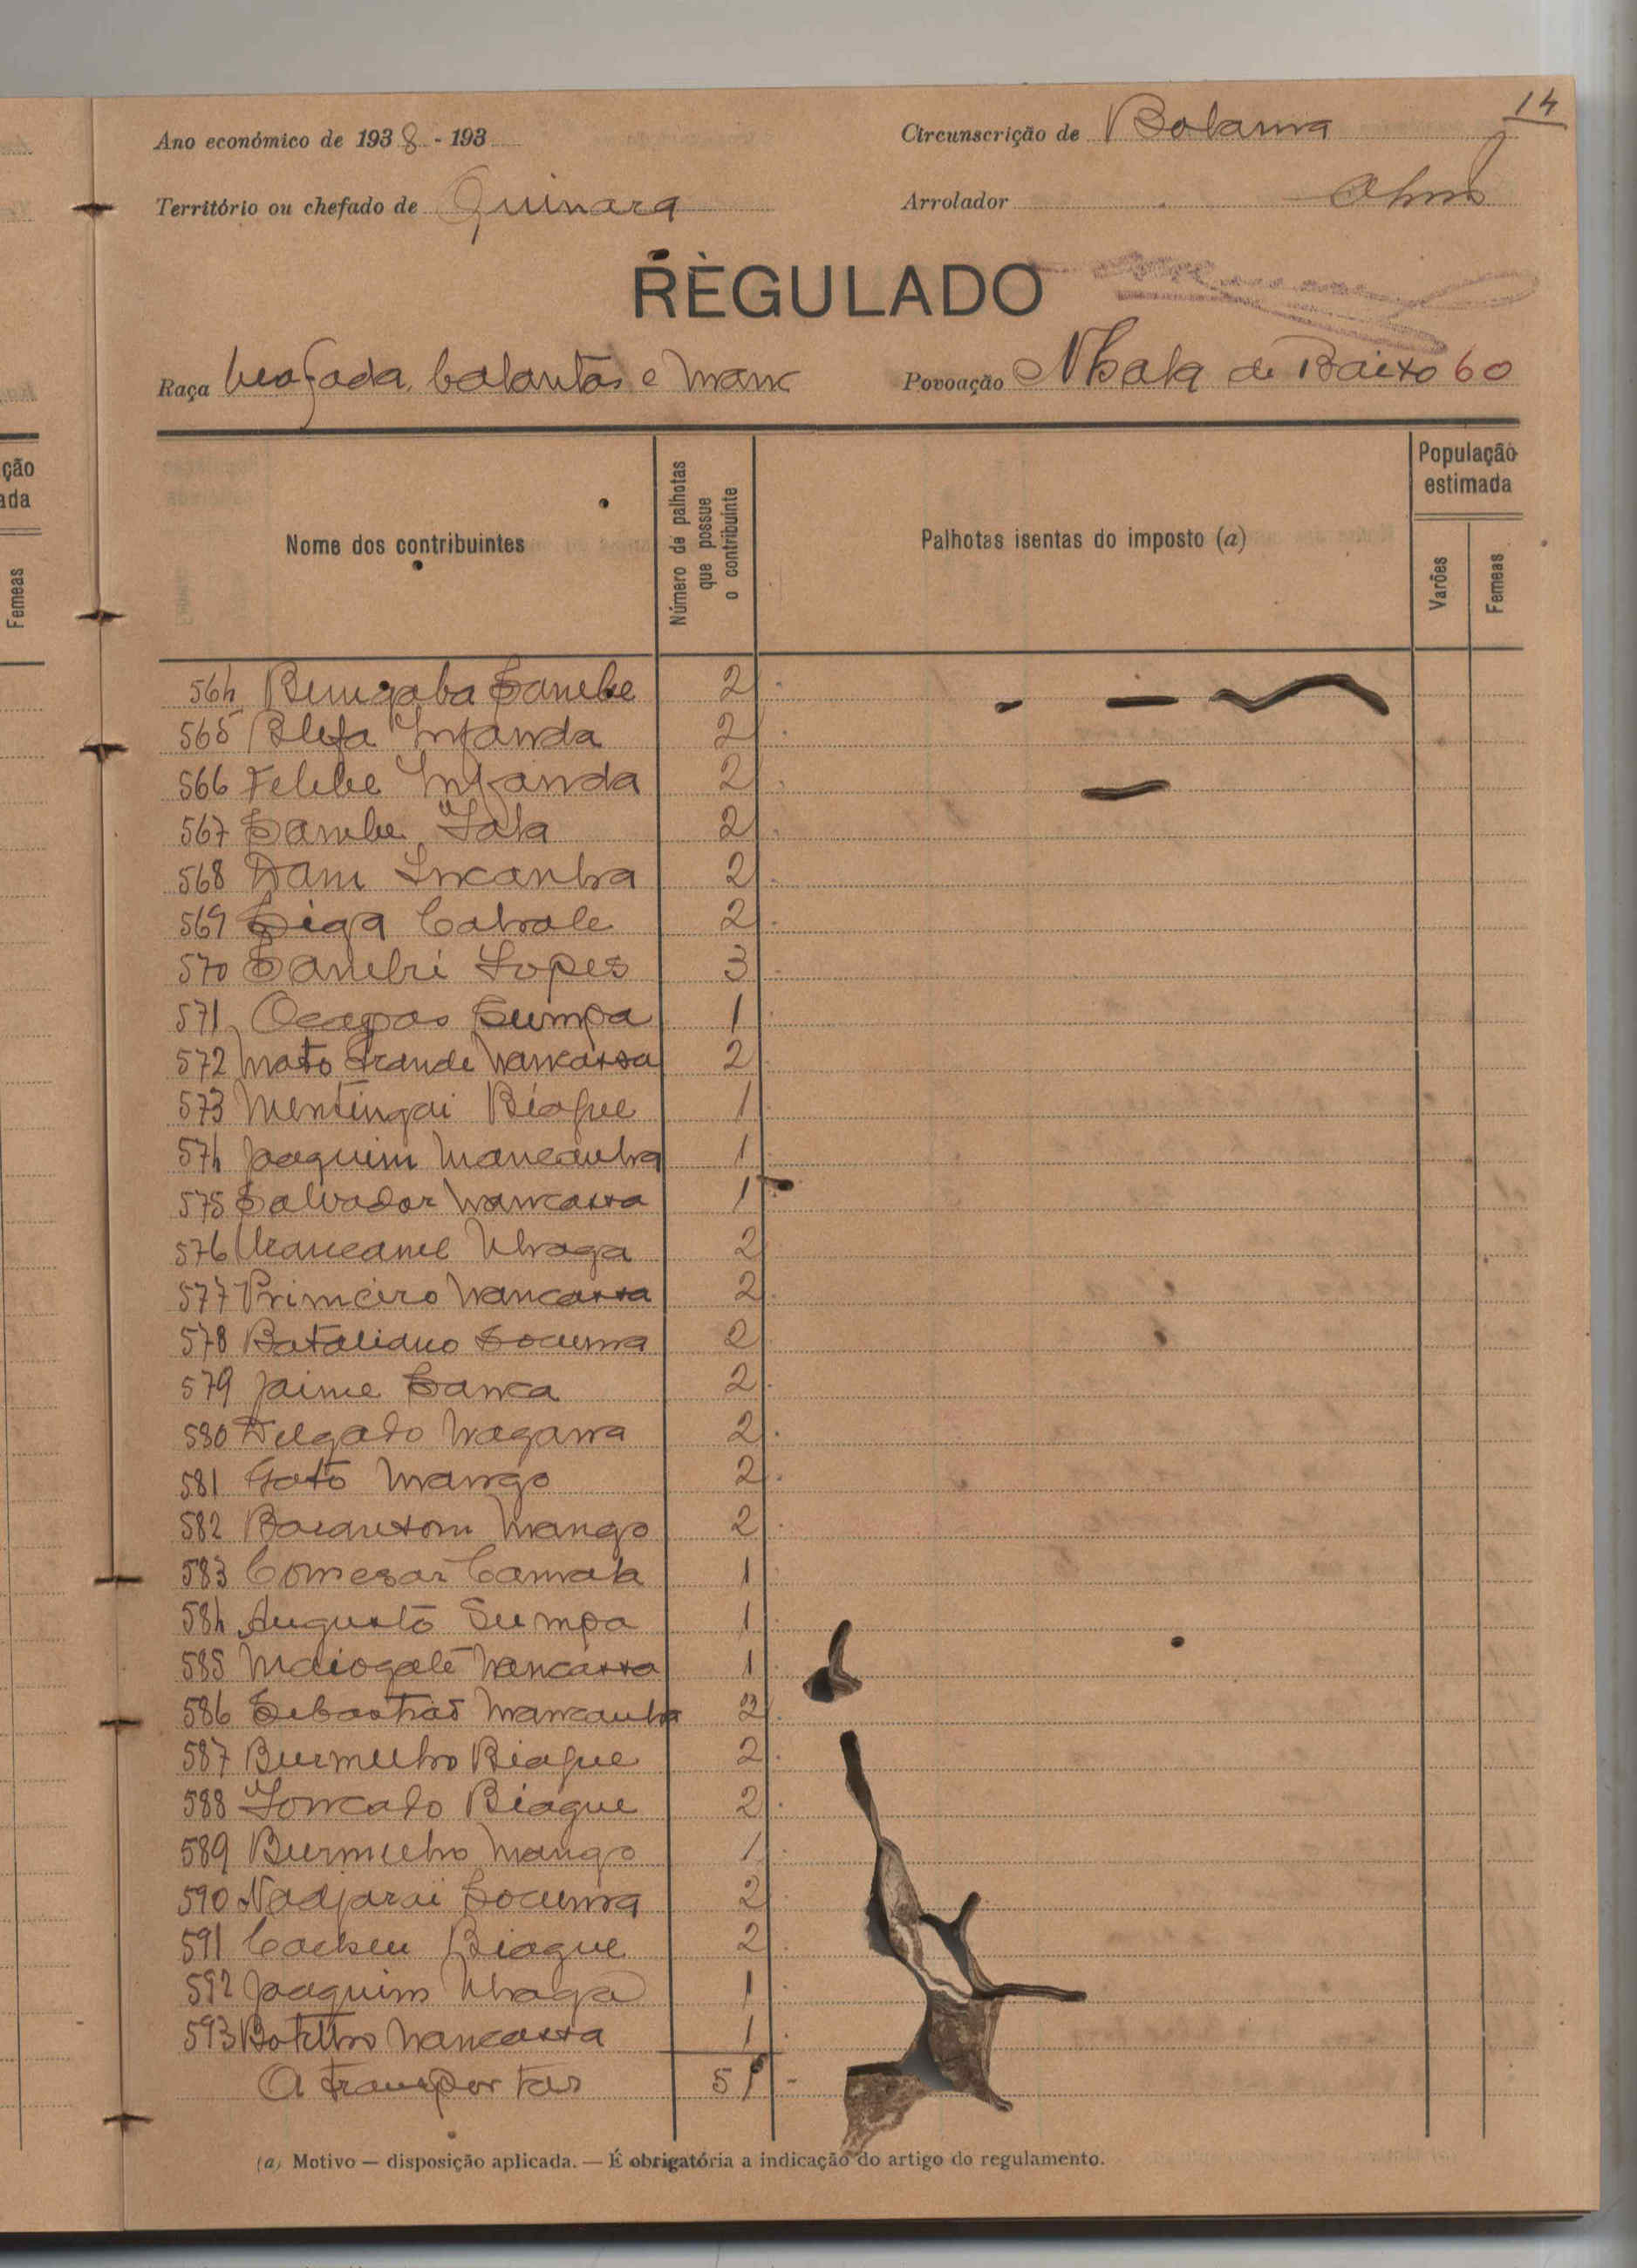 14
Ano económico de 1938 - 193
Circunscrição de Bolama
Território ou chefado de Quinara
Arrolador
REGULADO
Raça beafada, balantas e manc
Povoação Nhala de Baixo 60
Nome dos contribuintes
Número de palhotas que possue o contribuinte
Palhotas isentas do imposto (a)
População estimada
Varões
Femeas
564 Sambe 2
565 Infanda 2
566 Infanda 2
567 Sambe Iala 2
568 Dam Incanha 2
569 Siga Cabrale 2
570 Sambri Lopes 3
571 Sumpa 1
572 Mato Grande Nancassa 2
573 Mentingai Biague 1
574 Joaquim Mancanha 1
575 Salvador Nancassa 1
576 Nhaga 2
577 Primeiro Nancassa 2
578 Socuma 2
579 Jaime Sanca 2
580 Delgado Nagana 2
581 Gato Mango 2
582 Mango 2
583 Comesar Camala 1
584 Augusto Sumpa 1
585 Maiogalé Nancassa 1
586 Sebastiao Mancanha 2
587 Biague 2
588 Biague 2
589 Mango 1
590 Nadjarai Socuma 2
591 Biague 2
592 Joaquim Nhaga 1
593 Botelho Nancassa 1
A transportar 51
(a) Motivo — disposição aplicada. — É obrigatória a indicação do artigo do regulamento.
ção
ada
Femeas